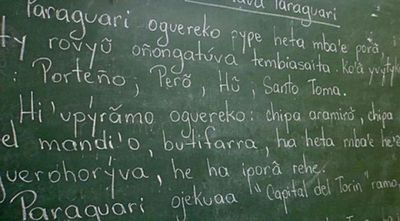 Paraguari
Paraguari oguereko pype heta mba'e porã,
ty rovyũ oñongatúva tembiasaita. ko'ã yvyty
: Porteño, Perõ, Hũ, Santo Toma.
Hi'upyrãmo oguereko: chipa aramirõ, chipa
el mandi'o, butifarra, ha heta mba'e he'ẽ
uerohorýva, he ha iporã rehe.
Paraguari ojekuaa "Capital del Torin" ramo,